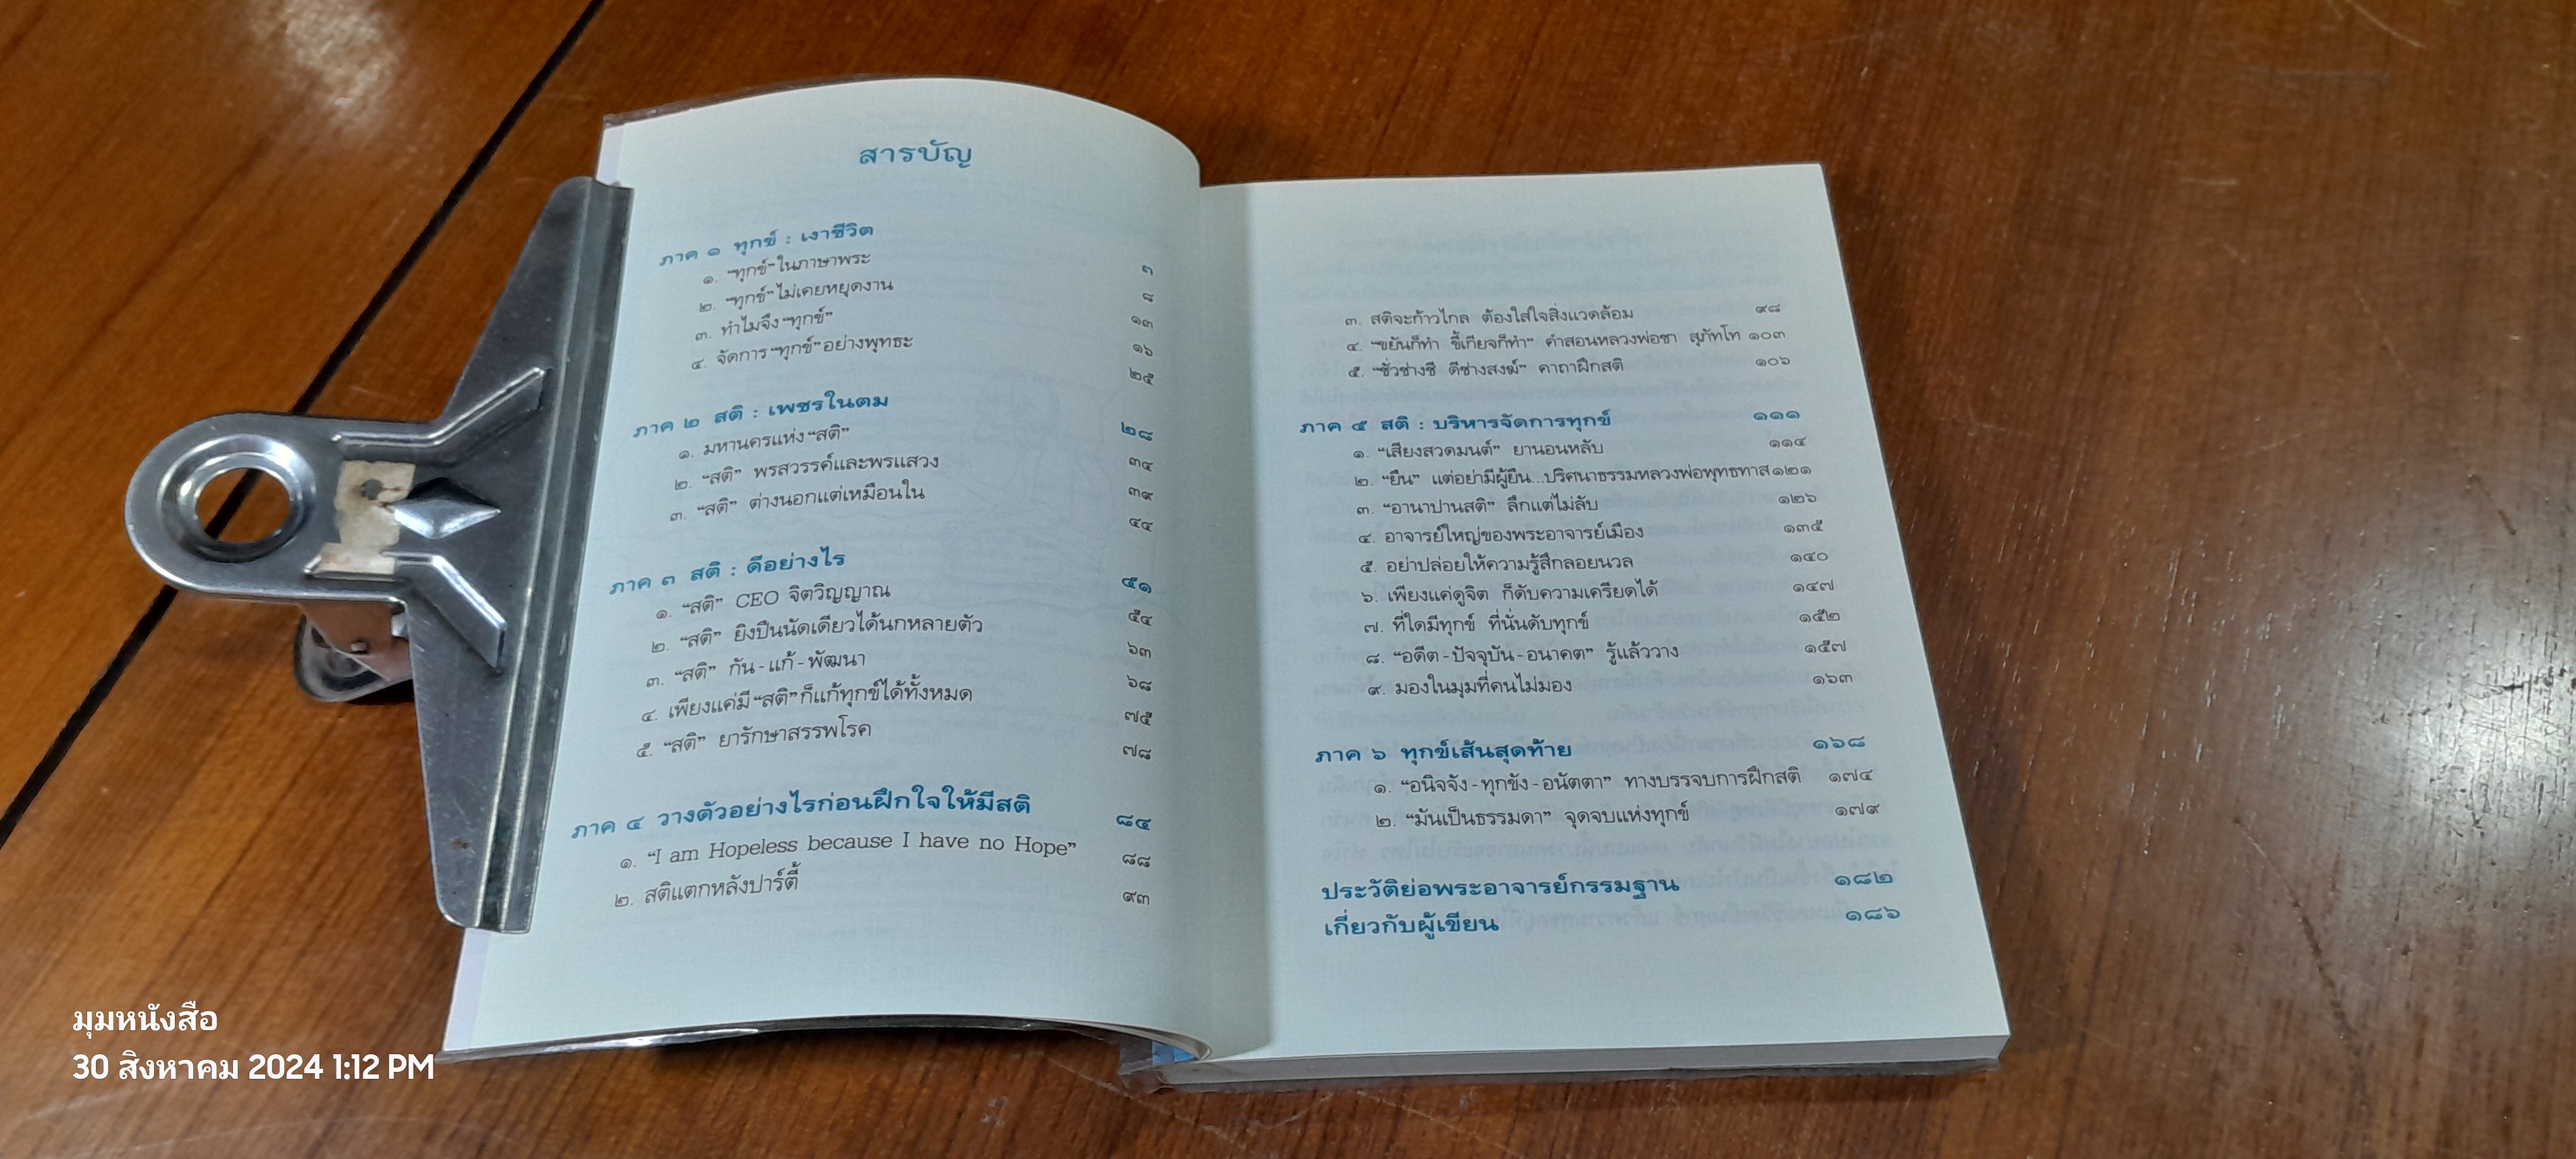 สารบัญ
ภาค ๑ ทุกข์ : เงาชีวิต ๓
๑. “ทุกข์”ในภาษาพระ ๘
๒. “ทุกข์”ไม่เคยหยุดงาน ๑๓
๓. ทำไมจึง“ทุกข์” ๑๖
๔. จัดการ“ทุกข์”อย่างพุทธะ ๒๕
ภาค ๒ สติ : เพชรในตม ๒๘
๑. มหานครแห่ง“สติ” ๓๔
๒. “สติ” พรสวรรค์และพรแสวง ๓๙
๓. “สติ” ต่างนอกแต่เหมือนใน ๔๔
ภาค ๓ สติ : ดีอย่างไร ๕๑
๑. “สติ” CEO จิตวิญญาณ ๕๔
๒. “สติ” ยิงปืนนัดเดียวได้นกหลายตัว ๖๓
๓. “สติ” กัน-แก้-พัฒนา ๖๘
๔. เพียงแค่มี“สติ”ก็แก้ทุกข์ได้ทั้งหมด ๗๕
๕. “สติ” ยารักษาสรรพโรค ๗๘
ภาค ๔ วางตัวอย่างไรก่อนฝึกใจให้มีสติ ๘๔
๑. “I am Hopeless because I have no Hope” ๘๘
๒. สติแตกหลังปาร์ตี้ ๙๓
๓. สติจะก้าวไกล ต้องใส่ใจสิ่งแวดล้อม ๙๘
๔. “ขยันก็ทำ ขี้เกียจก็ทำ” คำสอนหลวงพ่อชา สุภัทโท ๑๐๓
๕. “ชั่วช่างชี ดีช่างสงฆ์” คาถาฝึกสติ ๑๐๖
ภาค ๕ สติ : บริหารจัดการทุกข์ ๑๑๑
๑. “เสียงสวดมนต์” ยานอนหลับ ๑๑๔
๒. “ยืน” แต่อย่ามีผู้ยืน...ปริศนาธรรมหลวงพ่อพุทธทาส ๑๒๑
๓. “อานาปานสติ” ลึกแต่ไม่ลับ ๑๒๖
๔. อาจารย์ใหญ่ของพระอาจารย์เมือง ๑๓๕
๕. อย่าปล่อยให้ความรู้สึกลอยนวล ๑๔๐
๖. เพียงแค่ดูจิต ก็ดับความเครียดได้ ๑๔๗
๗. ที่ใดมีทุกข์ ที่นั่นดับทุกข์ ๑๕๒
๘. “อดีต-ปัจจุบัน-อนาคต” รู้แล้ววาง ๑๕๗
๙. มองในมุมที่คนไม่มอง ๑๖๓
ภาค ๖ ทุกข์เส้นสุดท้าย ๑๖๘
๑. “อนิจจัง-ทุกขัง-อนัตตา” ทางบรรจบการฝึกสติ ๑๗๔
๒. “มันเป็นธรรมดา” จุดจบแห่งทุกข์ ๑๗๙
ประวัติย่อพระอาจารย์กรรมฐาน ๑๘๒
เกี่ยวกับผู้เขียน ๑๘๖
มุมหนังสือ
30 สิงหาคม 2024 1:12 PM